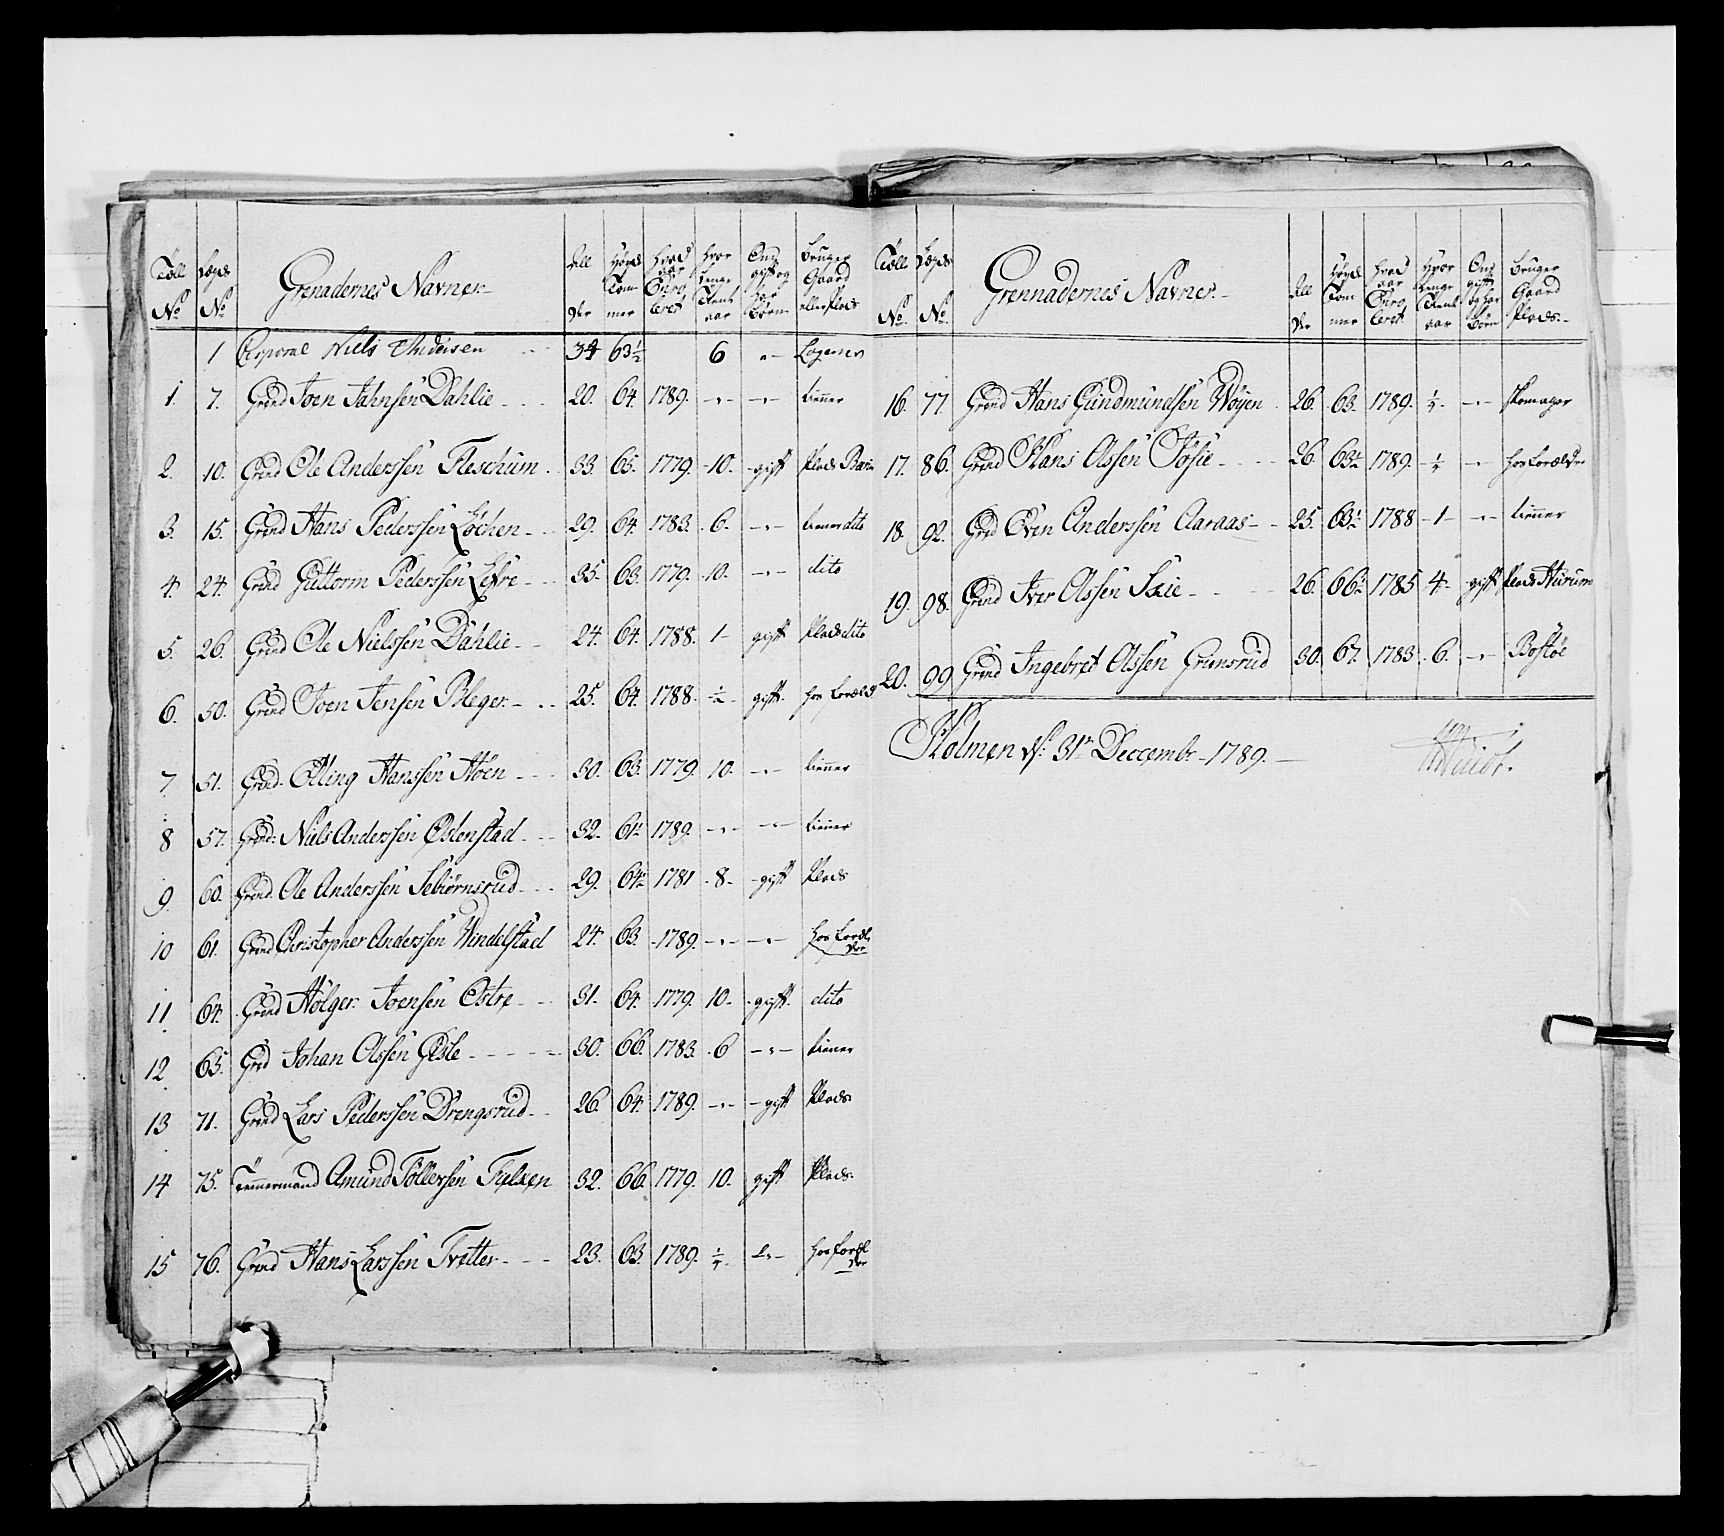 Tøll No Lægds No Grenadernes Navner Alder Høyde Tommer hvad aar Enrolleret hvor Lenge Tient aar Om gift og har Børn bruger Gaard eller Plads
1 Corporal Niels Andersen 34 63½ 6 -"- Logerer
1. 7. Grend Joen Jahnsen Dahlie 20. 64. 1789. -"- -"- tienner
2. 10. Grend Ole Anderssen Fleschum 33. 65. 1779. 10. gift Plads
3. 15. Grend Hans Pederssen Løchen 29. 64. 1783. 6. -"- tienner dito
4. 24. Grend Guttorm Pederssen 35. 63. 1779. 10. -"- dito
5. 26. Grend Ole Nielssen Dahlie 24. 64. 1788. 1 gift Plads dito
6. 50. Grend Joen Jensen Pleger 25. 64. 1788. ½ gift hos
7 51. Grend Elling Hanssen Høen 30. 63. 1779. 10. -"- tienner
8 57. Grend: Niels Anderssen Østenstad 32. 61½ 1789. -"- -"- tienner
9. 60. Grend. Ole Anderssen Sebiørnsrud 29. 64½ 1781 8. gift Plads
10 61. Grend Christopher Anderssen Windelstad 24. 63. 1789. -"- -"- hos Foreldre
11 64. Grend Holger Joensen Østre 31. 64. 1779. 10. gift. dito
12. 65. Gred Johan Olssen Gisle 30. 66. 1783. 6 -"- tiener
13 71. Grend Lars Pederssen Drengsrud 26. 64. 1789. -"- gift Plads
14 75. Temmermand Amund Tollersen 32. 66. 1779. 10. gift Plads.
15 76. Grend Hans Larssen Tvetter 23. 63. 1789. ¼. -"- hos Foreldre
Tøll No. Lægds No. Grennadernes Navner. Alder Høyde Tommer hvad aar Enrolleret Hvor Lenge Tient aar Om gift og har Børn bruger Gaard Plads.
16. 77 Grend Hans Gundmundsen Woyen 26. 63. 1789. ¼ -"- skomager
17. 86. Grend Hans Olssen Tofsie 26. 63½ 1789. ¼ -"- hos Foreldre
18. 92. Gred Even Anderssen Aaraas 25. 63½ 1788 1 -"- tienner
19. 98. Grend Iver Olssen Scie 26. 66½ 1785 4. gift Plads Hurum
20. 99 Grend Ingebret Olssen Grimsrud 30. 67. 1783. 6. -"-
Holmen d: 31te Decembr 1789.